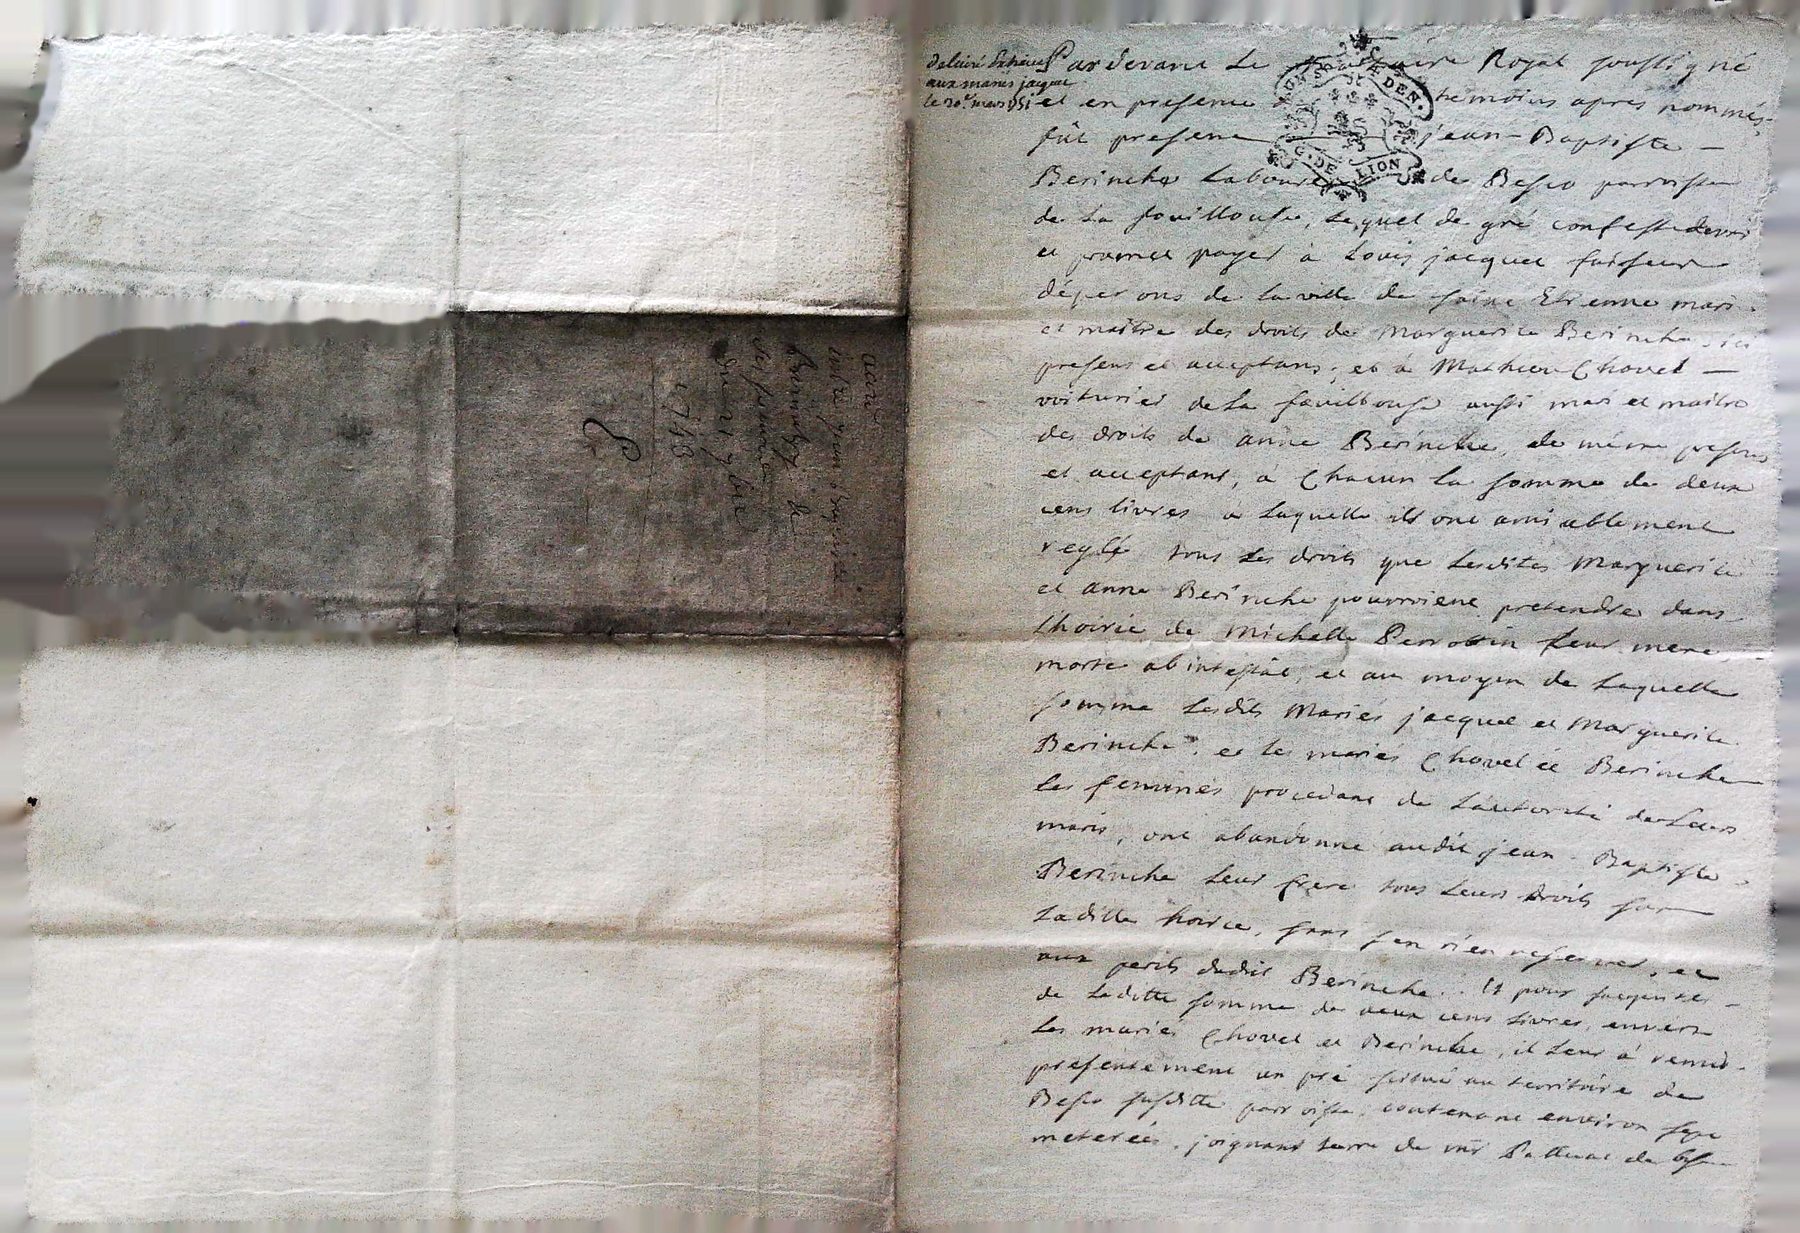 accord
entre jean Baptiste
Berinche &
ses sœurs
du 21 9bre
1748
delivré Extrait
aux mariés jacquet
le 20e mars 1751
Pardevant Le Notaire Royal soussigné
et en presence temoins apres nommés,
fût present jean-Baptiste
Berinche Laboureur de Besco parroisse
de La fouillouse, Lequel de gré confesse devoir
et promet payer à Louis jacquet faiseur
déperons de la ville de saint Etienne mari
et maitre des droits de Marguerite Berinche, ici
present et acceptant, et à Mathieu Chovet
voiturier de La fouillouse aussi mari et maitre
des droits de anne Berinche, de même present
et acceptant, à Chacun La somme de deux
cens livres a laquelle ils ont amiablement
reglé tous Les droits que Lesdites Marguerite
et anne Berinche pourroient pretendre dans
Lhoirie de Michelle Perrotin Leur mere
morte abintestat, et au moyen de Laquelle
somme Lesdits Mariés jacquet et Marguerite
Berinche, et les mariés Chovet et Berinche
les femmes procedant de Lautorité de Leurs
maris, ont abandonné audit jean-Baptiste
Berinche Leur frere tous Leurs droits sur
Laditte hoirie, sans s'en rien reserver, et
aux perils dudit Berinche. Et pour sacquiter
de Laditte somme de deux cens livres, envers
Les mariés Chovet et Berinche, il Leur à remis
presentement un pré scitué au territoire de
Besco susditte parroisse, contenant environ sept
meterées, joignant terre de